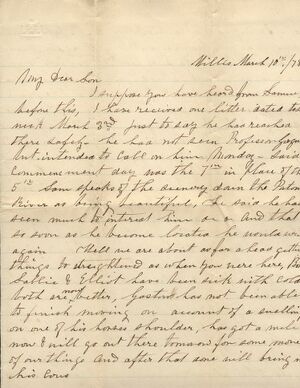 Willis March 10th/78
My Dear Son
I suppose you have heard from Samuel
before this, I have received one letter dated
March 3rd just to say he has reached
there safely he has not seen Professor
but intended to call on him Monday. Said
Commencment day was the 7th in place of the
5th Sam speaks of the scenery down the
River as being beautiful, he said he had
seen much to interest him and that
so soon as he become he would write
again Well we are about as far a head getting
things straightened as when you were here,
Sallie & Elliot have been sick with Cold
both are now better, has not been able
to finish moving on account of a swelling
on one of his horses shoulder, has got a mule
now & will go out there tomorow for some more
of our things and after that one will bring
his Cows